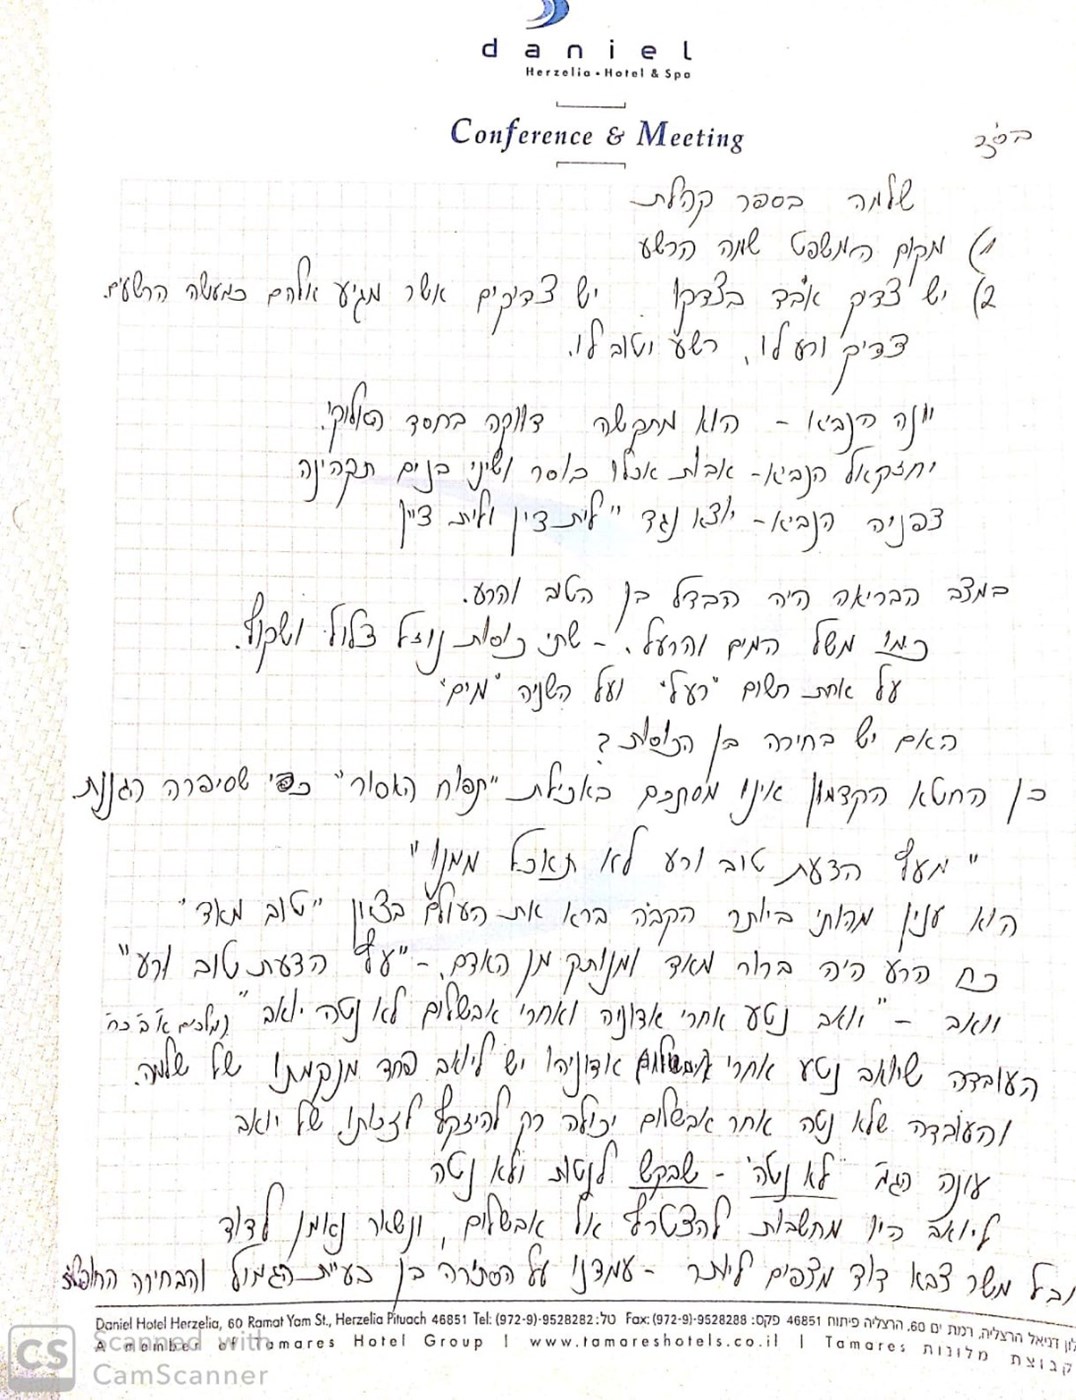 daniel
Herzelia • Hotel & Spa
Conference & Meeting
בס"ד
שלמה בספר קהלת
1) מקום המשפט שמה הרשע
2) יש צדיק אבד בצדקו יש צדיקים אשר מגיע אלהם כמעשה הרשעים.
צדיק ורע לו, רשע וטוב לו.
יונה הנביא - הוא מתקשה דווקה בחסד האלוקי.
יחזקאל הנביא - אבות אכלו בוסר ושיני בנים תקהינה
צפניה הנביא - יוצא נגד "לית דין ולית דיין
במצב הבריאה היה הבדל בן הטוב והרע.
כמו משל המים והרעל. - שתי כוסות נוזל צלול ושקוף.
על אחת רשום "רעל" ועל השניה "מים"
האם יש בחירה בן הכוסות?
כן החטא הקדמון אינו מסתכם באכילת "תפוח האסור" כפי שסיפרה הגננת.
"מעץ הדעת טוב ורע לא תאכל ממנו"
הוא ענין מהותי ביותר הקב"ה ברא את העולם בצוון "טוב מאד"
כח הרע היה ברור מאד ומנותק מן האדם. - "עץ הדעת טוב ורע"
יואב - "יואב נטע אחרי אדוניה ואחרי אבשלום לא נטה יואב" (מלכים א' ב' כח'
העובדה שיואב נטע אחרי אדוניהו יש ליואב פחד מנקמתו של שלמה.
והעובדה שלא נטה אחר אבשלום יכולה רק להיזקף לזכותו של יואב
עונה הגמ' "לא נטה" - שבקש לנטות ולא נטה
ליואב היו מחשבות להצטרף אל אבשלום, ונשאר נאמן לדוד
ובל משר צבא דוד מצפים ליותר - עמדנו על הסתירה בן בעיית הגמול והבחירה החופשית
Daniel Hotel Herzelia, 60 Ramat Yam St., Herzelia Pituach 46851 Tel: (972-9)-9528282 :טל Fax: (972-9)-9528288 :פקס 46851 מלון דניאל הרצליה, רמת ים 60, הרצליה פיתוח
A member of Tamares Hotel Group | www.tamareshotels.co.il | Tamares קבוצת מלונות
CS Scanned with
CamScanner